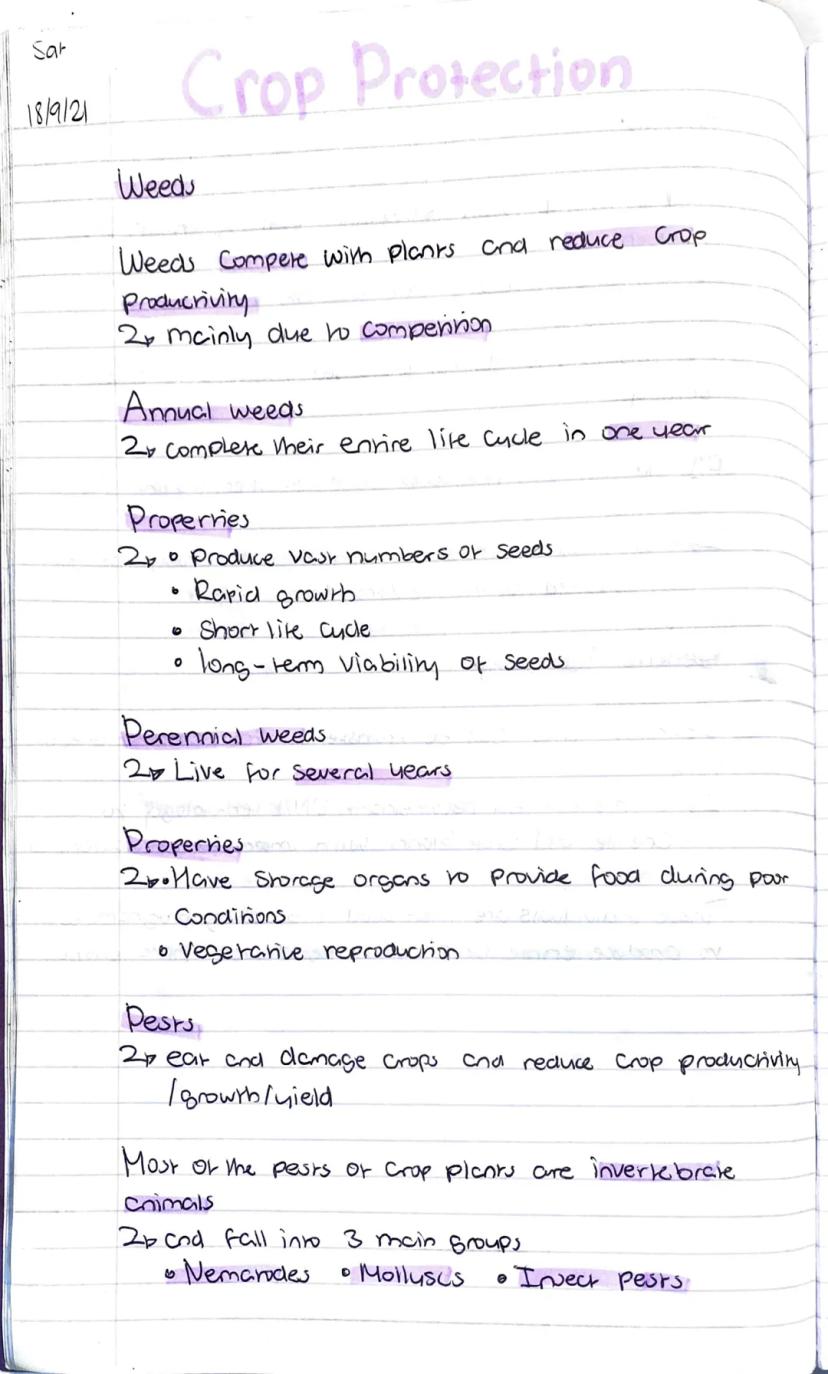 Sat
18/9/21
Crop Protection
Weeds
Weeds compete with plants and reduce crop
productivity
↳ mainly due to competition
Annual weeds
↳ complete their entire life cycle in one year
Properties
↳ • Produce vast numbers of seeds
• Rapid growth
• Short life cycle
• long-term viability of seeds
Perennial weeds
↳ Live for several years
Properties
↳ • Have storage organs to provide food during poor
conditions
• Vegetative reproduction
Pests
↳ eat and damage crops and reduce crop productivity
/growth/yield
Most of the pests of crop plants are invertebrate
animals
↳ and fall into 3 main groups
• Nematodes • Molluscs • Insect pests